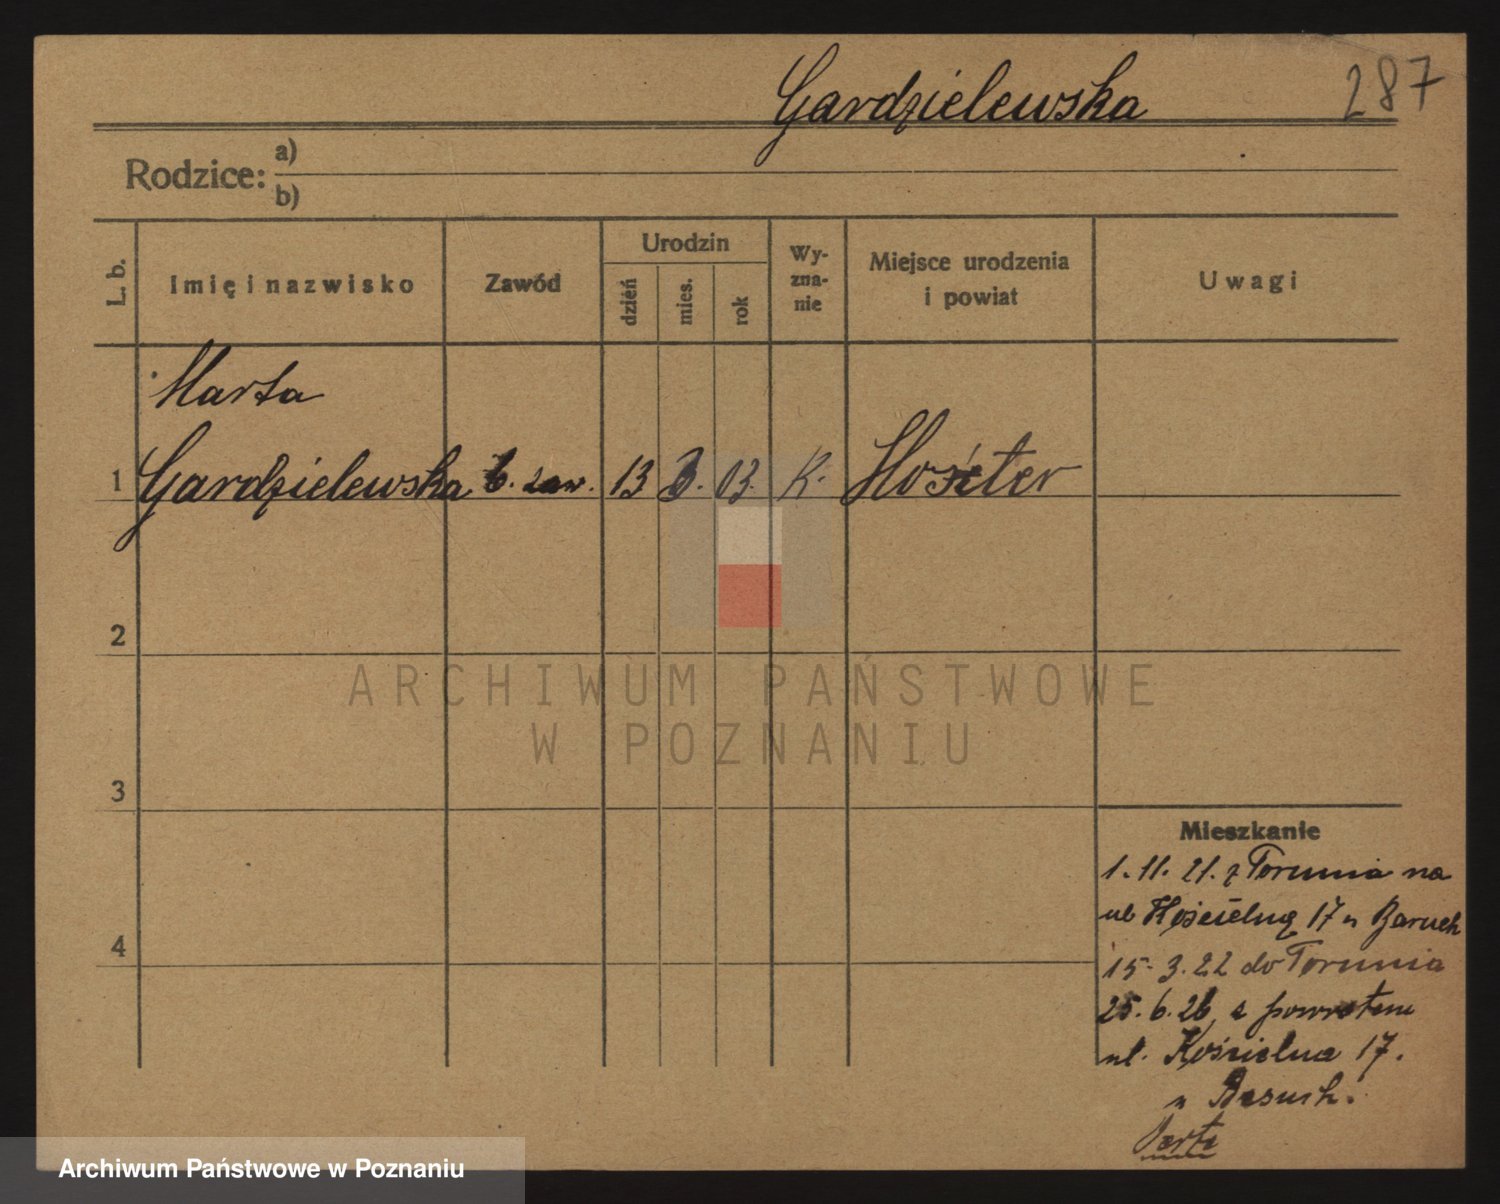 Gardzielewska 287
Rodzice: a)
b)
L. b. Imię i nazwisko Zawód Urodzin dzień mies. rok Wy-zna-nie Miejsce urodzenia i powiat Uwagi
Marta
1 Gardzielewska b. zaw. 13 3. 03. K.
2
ARCHIWUM PAŃSTWOWE
W POZNANIU
3
Mieszkanie
1. 11. 21. z Torunia na
ul Kościelną 17 u Baruch
4
15. 3. 22 do Torunia
25. 6. 26, z powrotem
ul. Kościelna 17.
u
Archiwum Państwowe w Poznaniu